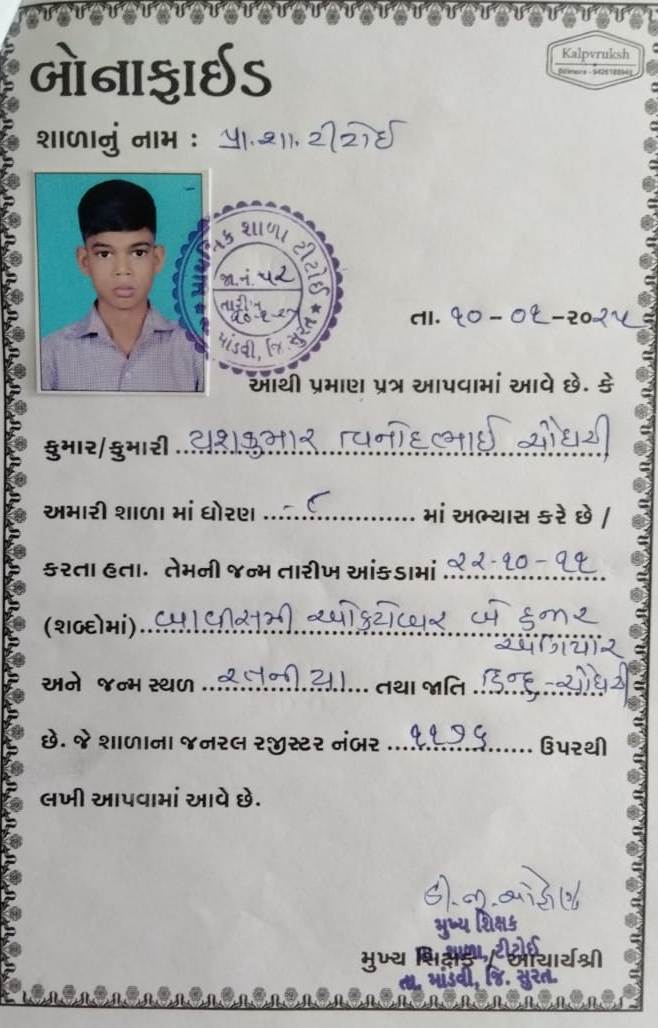 Kalpvruksh
Bilimora - 9426188949
બોનાફાઈડ
શાળાનું નામ : પ્રા.શા. ટીટોઈ
પ્રાથમિક શાળા ટીટોઈ
જા.નં. ૫૨
તારીખ
૧૦-૧-૨૫
માંડવી, જિ. સુરત
તા. ૧૦ - ૦૧ - ૨૦૨૫
આથી પ્રમાણ પત્ર આપવામાં આવે છે. કે
કુમાર/કુમારી યશકુમાર વિનોદભાઈ ચૌધરી
અમારી શાળા માં ધોરણ ......... માં અભ્યાસ કરે છે /
કરતા હતા. તેમની જન્મ તારીખ આંકડામાં ૨૨-૧૦-૧૧
(શબ્દોમાં) બાવીસમી ઓક્ટોબર બે હજાર
અગિયાર
અને જન્મ સ્થળ રતનીયા તથા જાતિ હિન્દુ - ચૌધરી
છે. જે શાળાના જનરલ રજીસ્ટર નંબર ૧૧૭૬ ઉપરથી
લખી આપવામાં આવે છે.
મુખ્ય શિક્ષક
મુખ્ય શિક્ષક / આચાર્યશ્રી
શાળા, ટીટોઈ
તા. માંડવી, જિ. સુરત.